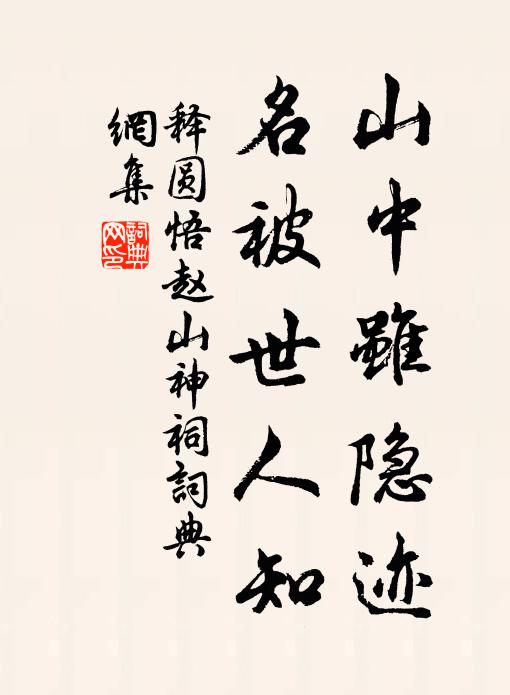 山中雖隐迹
名被世人知
释圆悟赵山神祠詞典
網集
詞典
网印